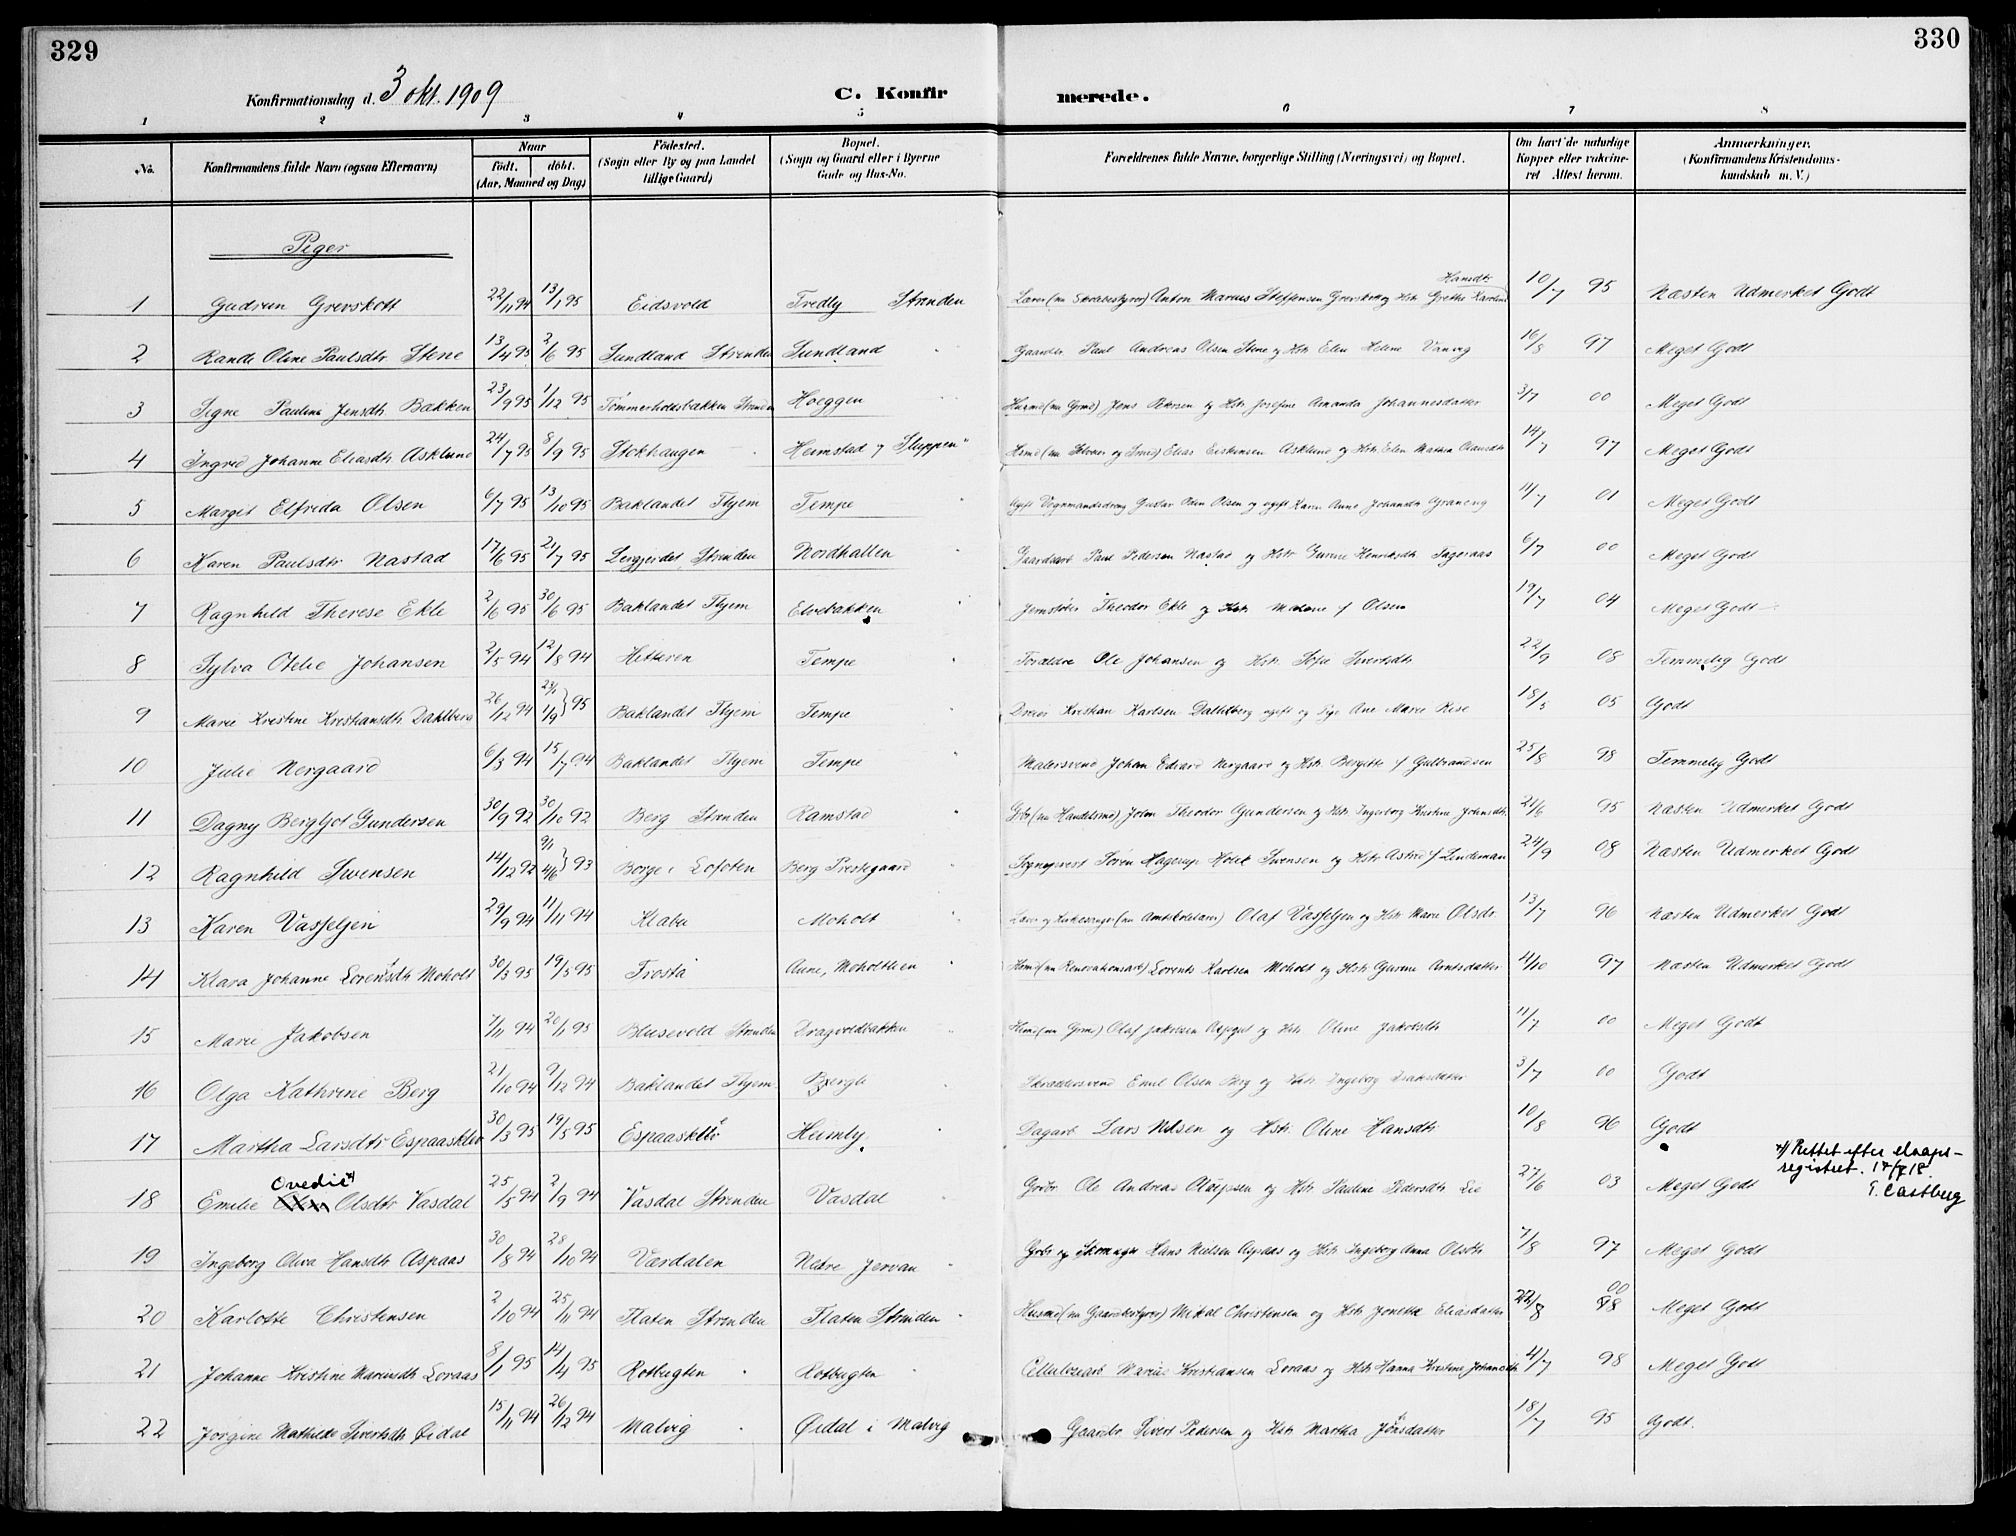 329
330
Konfirmationsdag d. 3 okt. 1909
C. Konfirmerede.
1 2 3 4 5 6 7 8
No. Konfirmandens fulde Navn (ogsaa Efternavn) Naar født. døbt. (Aar, Maaned og Dag) Fødested. (Sogn eller By og paa Landet tillige Gaard) Bopæl. (Sogn og Gaard eller i Byerne Gade og Hus-No. Forældrenes fulde Navne, borgerlige Stilling (Næringsvei) og Bopæl. Om havt de naturlige Kopper eller vakcineret Attest herom. Anmærkninger. (Konfirmandens Kristendomskundskab m. V.)
Piger
1 Gudrun Grevskott 22/11 94 13/1 95 Eidsvold Fredly Strinden Lærer (nu Skolebestyrer) Anton Marius Steffensen Grevskott og Hstr Grethe Karoline Hansdtr 10/7 95 Næsten Udmerket Godt
2 Rande Oline Paulsdtr Stene 13/4 95 2/6 95 Sundland Strinden Sundland " Gaardbr Paul Andreas Olsen Stene og Hstr Elen Helene Vanvig 16/8 97 Meget Godt
3 Signe Pauline Jensdtr Bakken 23/9 95 1/12 95 Tømmerholtsbakken Strinden Hoeggen " Husmd (nu Grmd) Jens Petersen og Hstr Josefine Amanda Johannesdatter 3/7 00 Meget Godt
4 Ingred Johanne Eliasdtr Asklund 24/7 95 8/9 95 Stokhaugen " Heimstad y Sluppen " Elias Eriksen Asklund og Hstr Elen Mathea Olausdtr 14/7 97 Meget Godt
5 Marget Elfrida Olsen 6/7 95 13/10 95 Baklandet Thjem Tempe " Ugift Vognmandsdreng Gustav Odin Olsen og ugift Karen Anne Johansdtr Graneng 11/7 01 Meget Godt
6 Karen Paulsdtr Nastad 17/6 95 21/7 95 Lergjerdet Strinden Nordhallen Gaardarb Paul Pedersen Nastad og Hstr Gurine Henriksdtr Sageraas 6/7 00 Meget Godt
7 Ragnhild Therese Ekle 2/6 95 30/6 95 Baklandet Thjem Elvebakken " Jernstøber Theodor Ekle og Hstr Malene f Olsen 19/7 04 Meget Godt
8 Sylva Otelie Johansen 2/5 94 12/8 94 Hitteren Tempe " Forældre Ole Johansen og Hstr Sofie Sivertsdtr 22/9 08 Temmelig Godt
9 Marie Kristine Kristiansdtr Dahlberg 26/12 94 23/1 1/9 } 95 Baklandet Thjem Tempe Dreier Kristian Karlsen Dahlberg ugift og Pige Ane Marie Rise 18/5 05 Godt
10 Julie Nergaard 6/3 94 15/7 94 Baklandet Thjem Tempe " Malersvend Johan Edvard Nergaard og Hstr Bergitte f Gulbrandsen 25/8 98 Temmelig Godt
11 Dagny Bergljot Gundersen 30/9 92 30/10 92 Berg Strinden Ramstad " Grbr (nu Handelsmd) John Theodor Gundersen og Hstr Ingeborg Kristine Johnsdtr 21/6 95 Næsten Udmerket Godt
12 Ragnhild Swensen 14/12 92 9/1 4/6 } 93 Borge i Lofoten Berg Prestegaard " Sogneprest Søren Hagerup Holck Swensen og Hstr Astrid f Lindeman 24/9 08 Næsten Udmerket Godt
13 Karen Vasseljen 29/9 94 11/11 94 Klæbu Moholt " Lærer og Kirkesanger (nu Amtsskolelærer) Olaf Vasseljen og Hstr Marie Olsdr. 13/7 96 Næsten Udmerket Godt
14 Klara Johanne Lorentsdtr Moholt 30/3 95 19/5 95 Frosta Aune, Moholtlien " Husmd (nu Renovationsarb) Lorents Karlsen Moholt og Hstr Gurine Arntsdatter 4/10 97 Næsten Udmerket Godt
15 Marie Jakobsen 7/11 94 20/1 95 Blusevold Strinden Dragvoldbakken " Husmd (nu Grmd) Olaf Jakobsen og Hstr Oline Jakobsdtr 11/7 00 Meget Godt
16 Olga Kathrine Berg 21/10 94 9/12 94 Baklandet Thjem Bergli Skræddersvend Emil Olsen Berg og Hstr Ingeborg Isaksdatter 3/7 00 Godt
17 Martha Larsdtr Espaasklev 30/3 95 19/5 95 Espaasklev Heimly " Dagarb Lars Nilsen og Hstr Oline Hansdtr 10/8 96 Godt
x) Rettet efter daaps-
registret. 17/7 18.
T. Castberg
18 Emilie Ovedie x) Olsdtr Vasdal 25/5 94 2/9 94 Vasdal Strinden Vasdal Grbr Ole Andreas Olufssen og Hstr Pauline Pedersdtr Lie 27/6 03 Meget Godt
19 Ingeborg Oliva Hansdtr Aspaas 30/8 94 28/10 94 Værdalen Nedre Jervan " Grbr og Skomager Hans Nielsen Aspaas og Hstr Ingeborg Anna Olsdtr 7/8 97 Meget Godt
20 Karlotte Christensen 2/10 94 25/11 94 Flaten Strinden Flaten Strinden " Husmd (nu Gaardbestyrer) Mikal Christensen og Hstr Jonetta Eliasdatter 22/8 00 98 Meget Godt
21 Johanne Kristine Mariusdtr Loraas 8/1 95 14/4 95 Rotbugten " Rotbugten " Cellulosearb Marius Kristiansen Loraas og Hstr Hanna Kristine Johansdtr 4/7 98 Meget Godt
22 Jørgine Mathilde Sivertsdtr Øidal 15/11 94 26/12 94 Malvig " Øidal i Malvig Gaardbr Sivert Pedersen og Hstr Martha Jonsdatter 18/7 95 Godt.